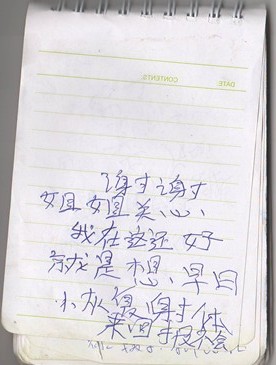 DATE CONTENTS
谢谢
姐姐关心、
我在这还好
就是想、早日
恢復身体
来回报社会